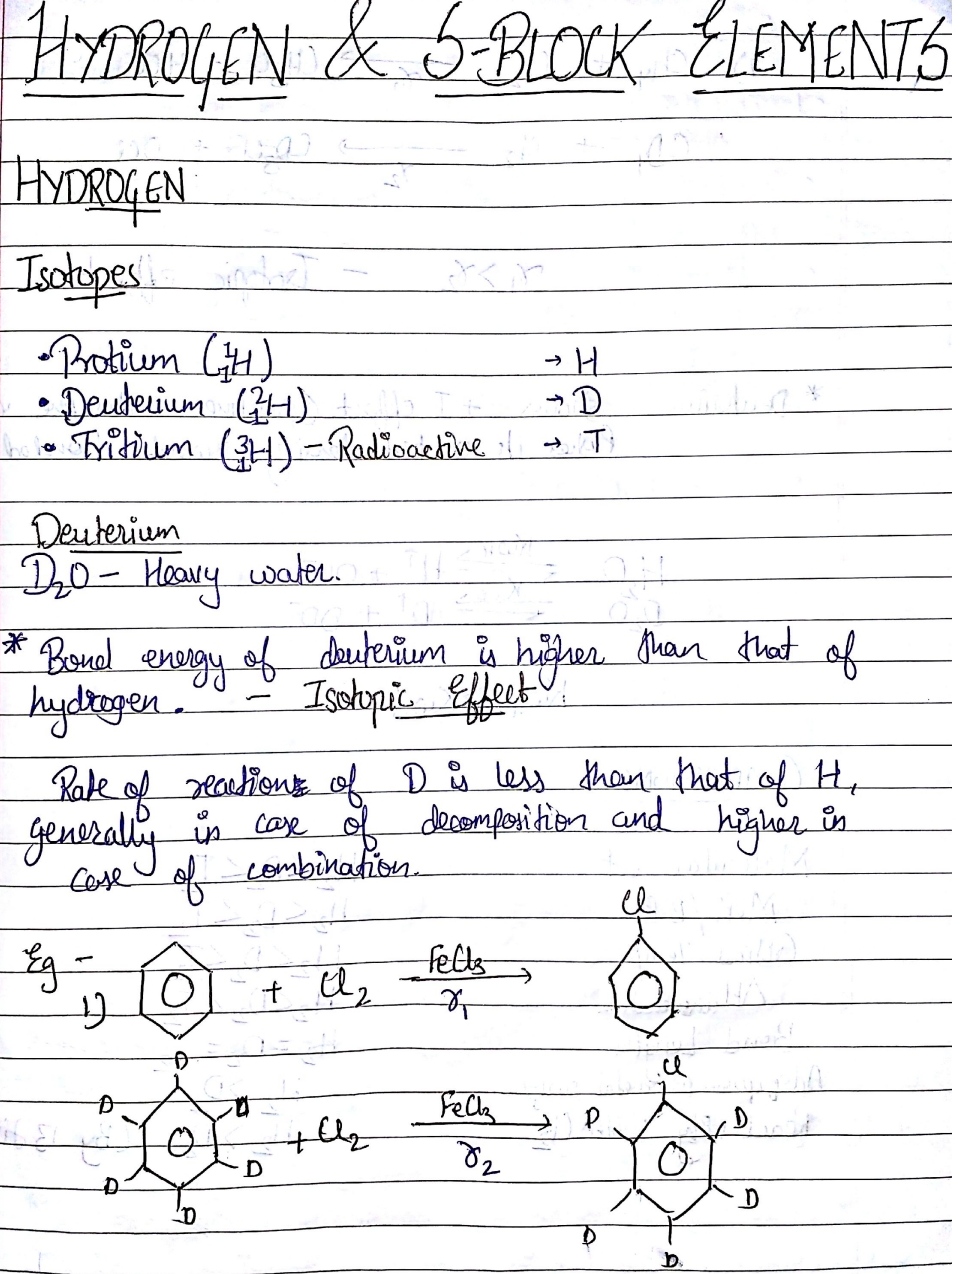 HYDROGEN & S-BLOCK ELEMENTS
HYDROGEN
Isotopes
• Protium (¹₁H) → H
• Deuterium (²₁H) → D
• Tritium (³₁H) – Radioactive → T
Deuterium
D₂O – Heavy water.
* Bond energy of deuterium is higher than that of
hydrogen. – Isotopic Effect
Rate of reactions of D is less than that of H,
generally in case of decomposition and higher in
case of combination.
Cl
Eg –
1) + Cl₂ FeCl₃ →
r₁
D Cl
D D + Cl₂ FeCl₃ → D D
r₂
D D D D
D D